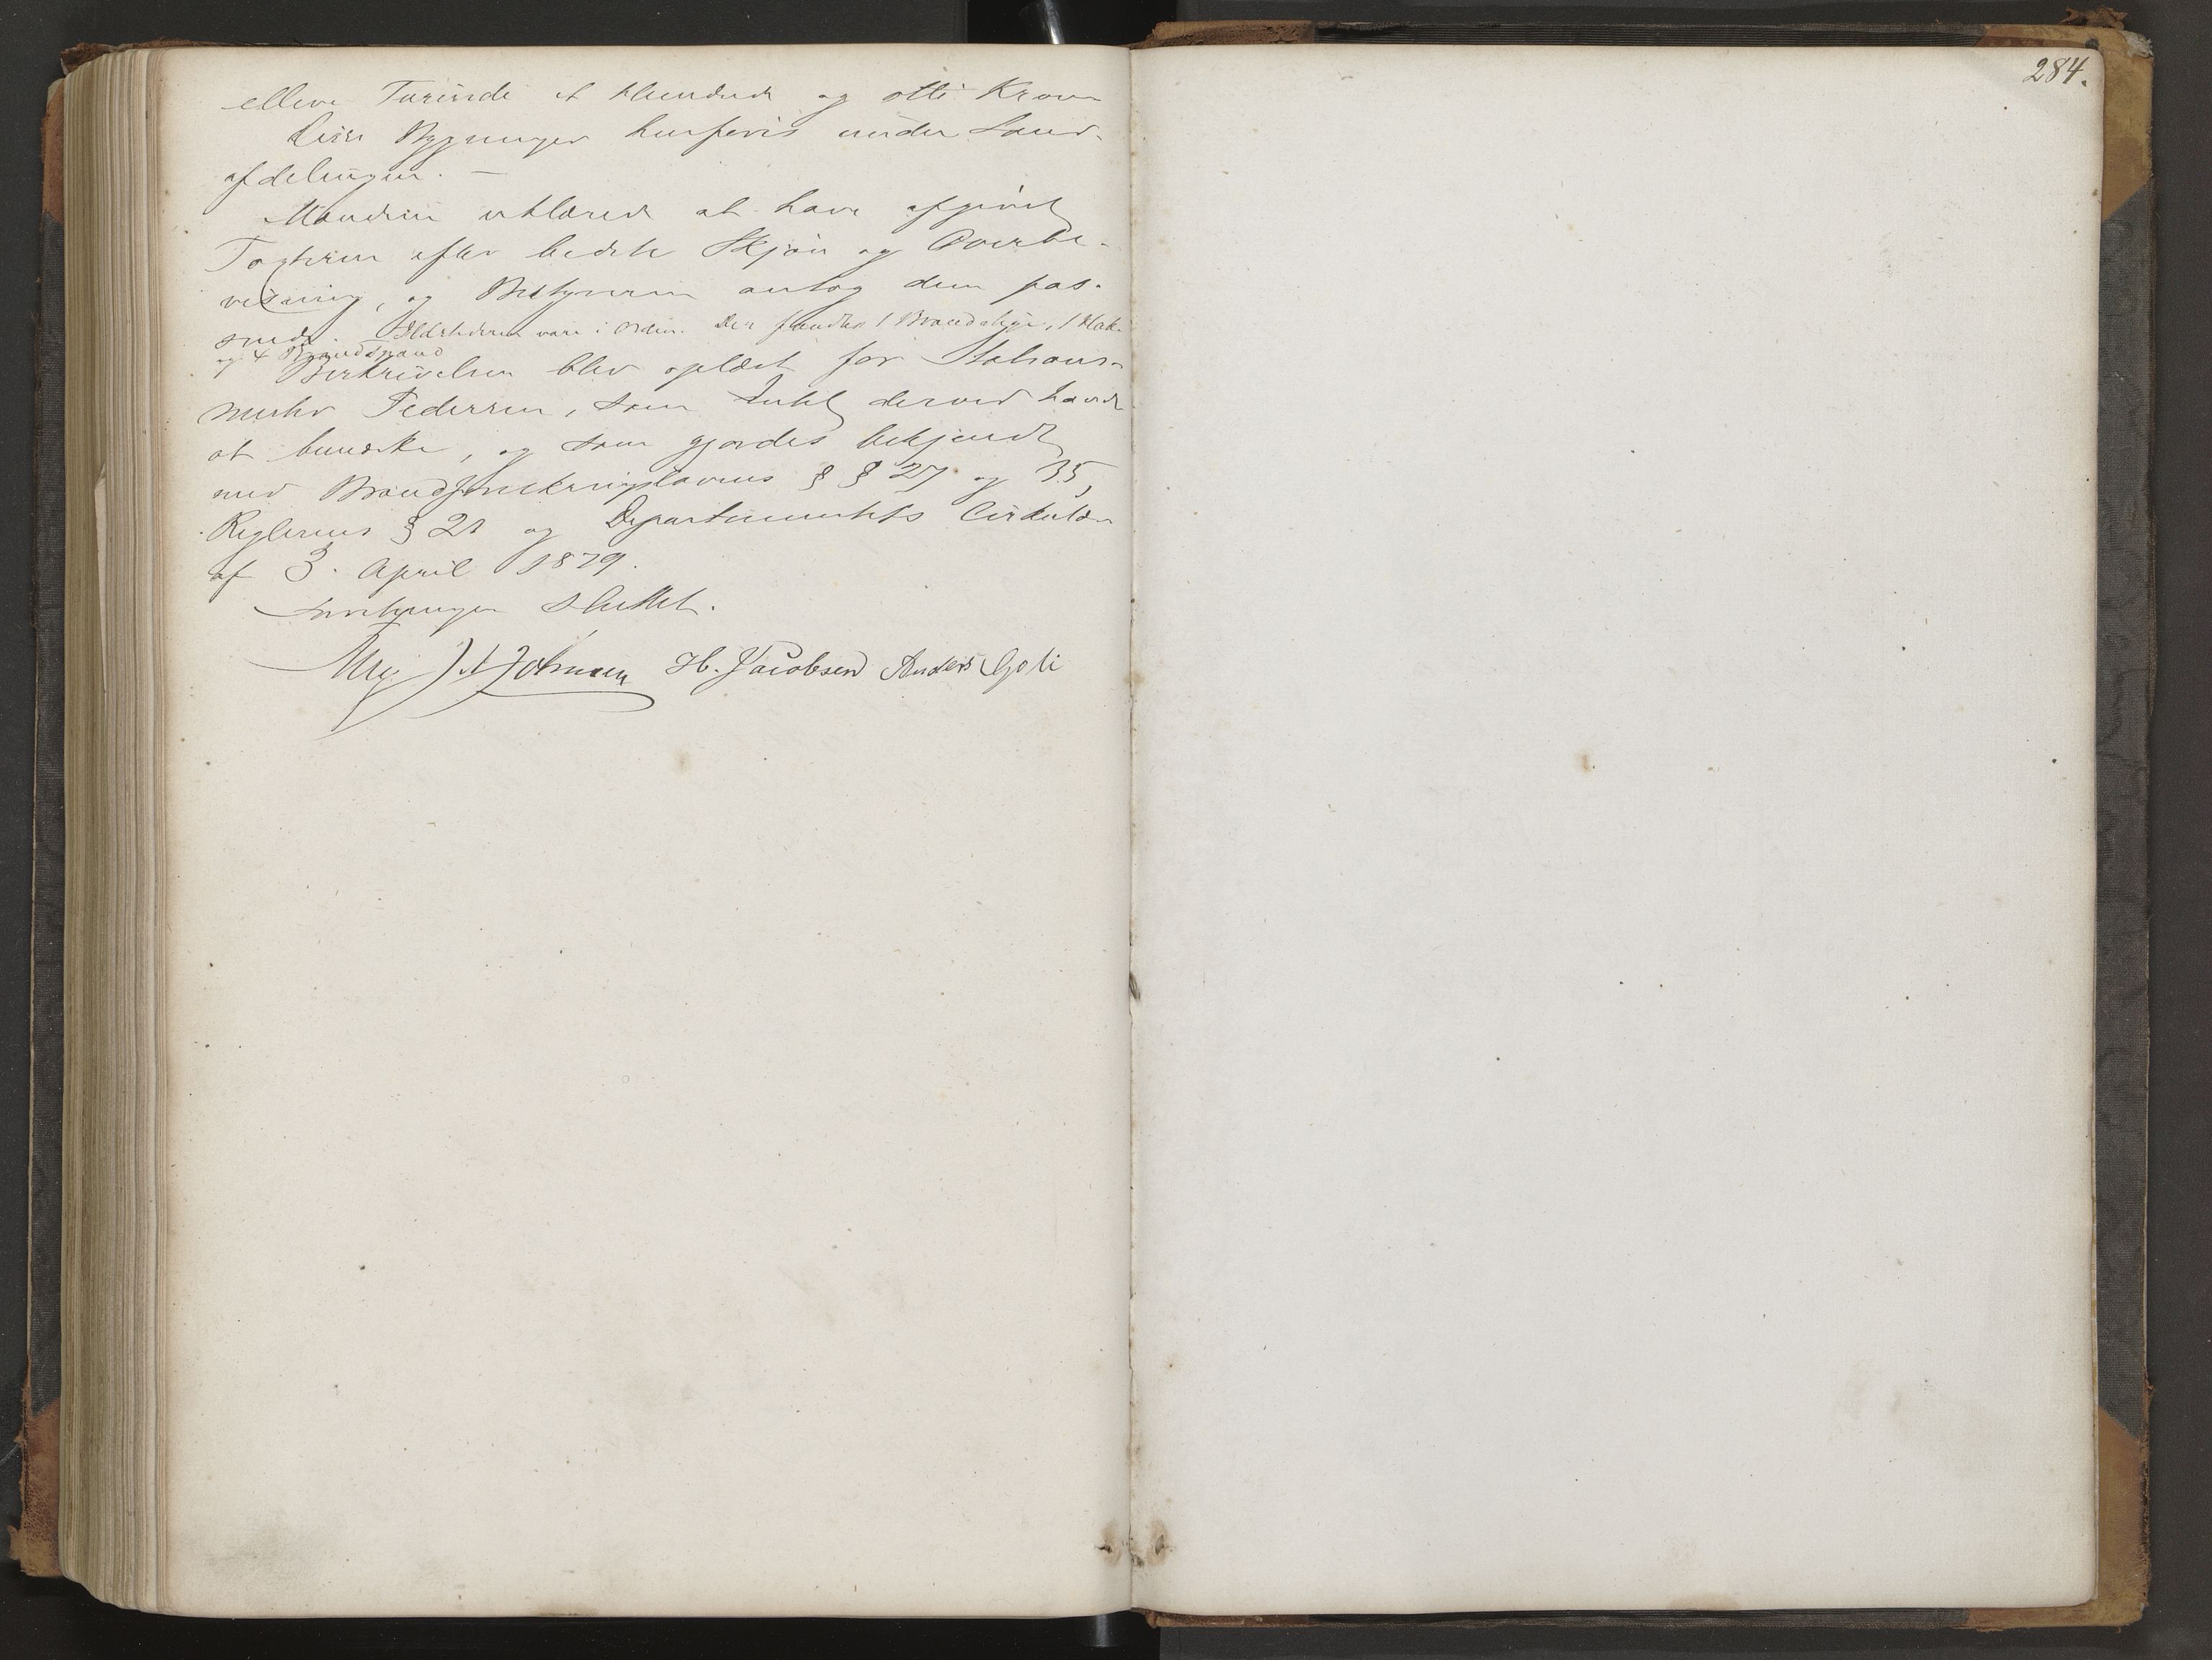 elleve Tusinde et Hundrede og otti Kroner
Disse Bygninger henføris under Land-
afdelingen. —
Mændene erklærede at have afgivet
Taxterne efter bedste Skjøn og Overbe-
visning, og Bestyreren antog dem pas-
sende. Ildstederne vare i Orden. Der fandtes 1 Brandstige, 1 Hak.
og 4 Brandspand
Beskrivelsen blev oplæst for Stations-
mester Pedersen, som Intet derved havde
at bemærke, og som gjordes bekjendt
med Brandforsikringslovens § § 27 og 35,
Reglernes § 21 og Departementets Cirkulær
af 3. April 1879.
Forretningen sluttet.
H. Jacobsen Anders Goli
284.